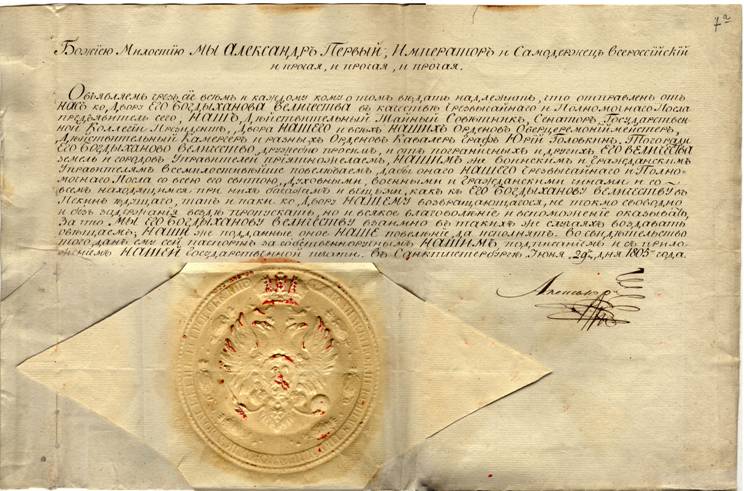 7а
Божіею Милостію Мы Александръ Первый, Императоръ и Самодержецъ Всероссійскій
и прочая, и прочая, и прочая.
Объявляемъ чрезъ сіе всѣмъ и каждому кому о томъ вѣдать надлежитъ, что отправленъ отъ
Насъ ко Двору Его Богдыханова Величества въ качествѣ Чрезвычайнаго и Полномочнаго Посла
предъявитель сего, Нашъ Дѣйствительный Тайный Совѣтникъ, Сенаторъ, Государствен-
ной Коллегіи Президентъ, Двора Нашего и всѣхъ Нашихъ Орденовъ Оберцеремоніймейстеръ,
Дѣйствительный Камергеръ и разныхъ Орденовъ Кавалеръ Графъ Юрій Головкинъ. Того ради
Его Богдыханово Величество дружебно просимъ, и отъ пограничныхъ и другихъ Его Величества
земель и городовъ Управителей пріятножелаемъ, Нашимъ же Воинскимъ и Гражданскимъ
Управителямъ Всемилостивѣйше повелѣваемъ, дабы онаго Нашего Чрезвычайнаго и Полно-
мочнаго Посла со всею его свитою, духовными, военными и гражданскими чинами и со
всѣмъ находящимся при нихъ и вещьми, какъ къ Его Богдыханову Величеству въ
Пекинъ ѣдущаго, такъ и паки ко Двору Нашему возвращающагося, не токмо свободно
и безъ задержанія вездѣ пропускать, но и всякое благоволѣніе и вспоможеніе оказывать,
За что Мы Его Богдыханову Величеству взаимно въ такихъ же случаяхъ воздавать
обѣщаемъ; Наши же подданные оное Наше повелѣніе да исполнятъ. Во свидѣтельство
того данъ ему сей паспортъ за собственноручнымъ Нашимъ подписаніемъ и съ прило-
женіемъ Нашей Государственной печати. Въ Санктпетербургѣ Іюня 29го дня 1805 года.
Александръ